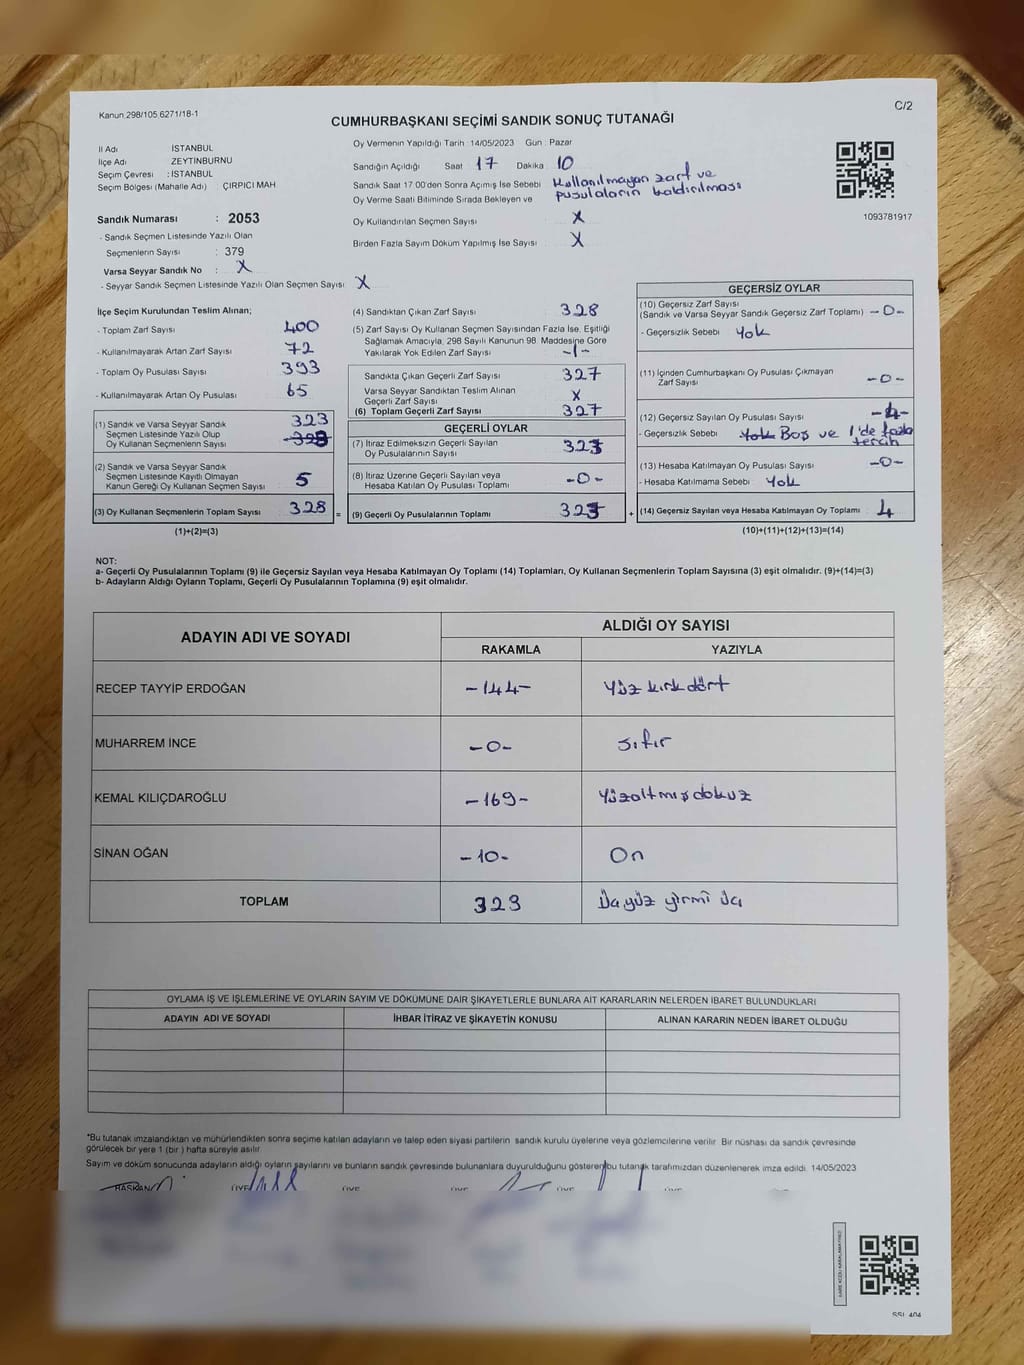 Kanun 298/105 6271/18-1
C/2
CUMHURBAŞKANI SEÇİMİ SANDIK SONUÇ TUTANAĞI
İl Adı : İSTANBUL
İlçe Adı : ZEYTİNBURNU
Seçim Çevresi : İSTANBUL
Seçim Bölgesi (Mahalle Adı) : ÇIRPICI MAH
Sandık Numarası : 2053
- Sandık Seçmen Listesinde Yazılı Olan
Seçmenlerin Sayısı : 379
Varsa Seyyar Sandık No : X
- Seyyar Sandık Seçmen Listesinde Yazılı Olan Seçmen Sayısı: X
Oy Vermenin Yapıldığı Tarih : 14/05/2023 Gün : Pazar
Sandığın Açıldığı Saat 17 Dakika 10
Sandık Saat 17 00'den Sonra Açımış İse Sebebi Kullanılmayan zarf ve pusulaların kaldırılması
Oy Verme Saati Bitiminde Sırada Bekleyen ve
Oy Kullandırılan Seçmen Sayısı : X
Birden Fazla Sayım Döküm Yapılmış İse Sayısı : X
1093781917
İlçe Seçim Kurulundan Teslim Alınan;
- Toplam Zarf Sayısı : 400
- Kullanılmayarak Artan Zarf Sayısı : 72
- Toplam Oy Pusulası Sayısı : 393
- Kullanılmayarak Artan Oy Pusulası : 65
(1) Sandık ve Varsa Seyyar Sandık
Seçmen Listesinde Yazılı Olup
Oy Kullanan Seçmenlerin Sayısı : 323
(2) Sandık ve Varsa Seyyar Sandık
Seçmen Listesinde Kayıtlı Olmayan
Kanun Gereği Oy Kullanan Seçmen Sayısı : 5
(3) Oy Kullanan Seçmenlerin Toplam Sayısı : 328 =
(1)+(2)=(3)
(4) Sandıktan Çıkan Zarf Sayısı : 328
(5) Zarf Sayısı Oy Kullanan Seçmen Sayısından Fazla İse, Eşitliği
Sağlamak Amacıyla, 298 Sayılı Kanunun 98 Maddesine Göre
Yakılarak Yok Edilen Zarf Sayısı : -1-
Sandıkta Çıkan Geçerli Zarf Sayısı : 327
Varsa Seyyar Sandıktan Teslim Alınan
Geçerli Zarf Sayısı : X
(6) Toplam Geçerli Zarf Sayısı : 327
GEÇERLİ OYLAR
(7) İtiraz Edilmeksizin Geçerli Sayılan
Oy Pusulalarının Sayısı : 323
(8) İtiraz Üzerine Geçerli Sayılan veya
Hesaba Katılan Oy Pusulası Toplamı : -0-
(9) Geçerli Oy Pusulalarının Toplamı : 323 +
GEÇERSİZ OYLAR
(10) Geçersiz Zarf Sayısı
(Sandık ve Varsa Seyyar Sandık Geçersiz Zarf Toplamı) : -0-
- Geçersizlik Sebebi : Yok
(11) İçinden Cumhurbaşkanı Oy Pusulası Çıkmayan
Zarf Sayısı : -0-
(12) Geçersiz Sayılan Oy Pusulası Sayısı : -4-
- Geçersizlik Sebebi : Yok Boş ve 1'de fazla tercih
(13) Hesaba Katılmayan Oy Pusulası Sayısı : -0-
- Hesaba Katılmama Sebebi : Yok
(14) Geçersiz Sayılan veya Hesaba Katılmayan Oy Toplamı : 4
(10)+(11)+(12)+(13)=(14)
NOT:
a- Geçerli Oy Pusulalarının Toplamı (9) ile Geçersiz Sayılan veya Hesaba Katılmayan Oy Toplamı (14) Toplamları, Oy Kullanan Seçmenlerin Toplam Sayısına (3) eşit olmalıdır. (9)+(14)=(3)
b- Adayların Aldığı Oyların Toplamı, Geçerli Oy Pusulalarının Toplamına (9) eşit olmalıdır.
ADAYIN ADI VE SOYADI
ALDIĞI OY SAYISI
RAKAMLA YAZIYLA
RECEP TAYYİP ERDOĞAN -144- Yüz kırk dört
MUHARREM İNCE -0- Sıfır
KEMAL KILIÇDAROĞLU -169- Yüzaltmışdokuz
SİNAN OĞAN -10- On
TOPLAM 323 Üçyüz yirmi üç
OYLAMA İŞ VE İŞLEMLERİNE VE OYLARIN SAYIM VE DÖKÜMÜNE DAİR ŞİKAYETLERLE BUNLARA AİT KARARLARIN NELERDEN İBARET BULUNDUKLARI
ADAYIN ADI VE SOYADI İHBAR İTİRAZ VE ŞİKAYETİN KONUSU ALINAN KARARIN NEDEN İBARET OLDUĞU
*Bu tutanak imzalandıktan ve mühürlendikten sonra seçime katılan adayların ve talep eden siyasi partilerin sandık kurulu üyelerine veya gözlemcilerine verilir. Bir nüshası da sandık çevresinde
görülecek bir yere 1 (bir) hafta süreyle asılır.
Sayım ve döküm sonucunda adayların aldığı oyların sayılarını ve bunların sandık çevresinde bulunanlara duyurulduğunu gösteren bu tutanak tarafımızdan düzenlenerek imza edildi. 14/05/2023
BAŞKAN ÜYE ÜYE ÜYE ÜYE ÜYE